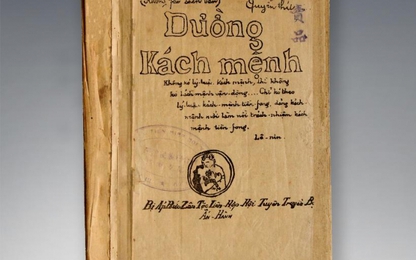 Quyển thứ
貢品
Đường
Kách mệnh
Không có lý luận kách mệnh, thì không
có kách mệnh vận động, ... Chỉ có theo
lý luận kách mệnh tiền fong, đảng kách
mệnh mới làm nổi trách nhiệm kách
mệnh tiền fong.
Lê-nin
Bị Áp Bức Zân Tộc Liên Hợp Hội Tuyên Truyền Bộ
Ấn-Hành